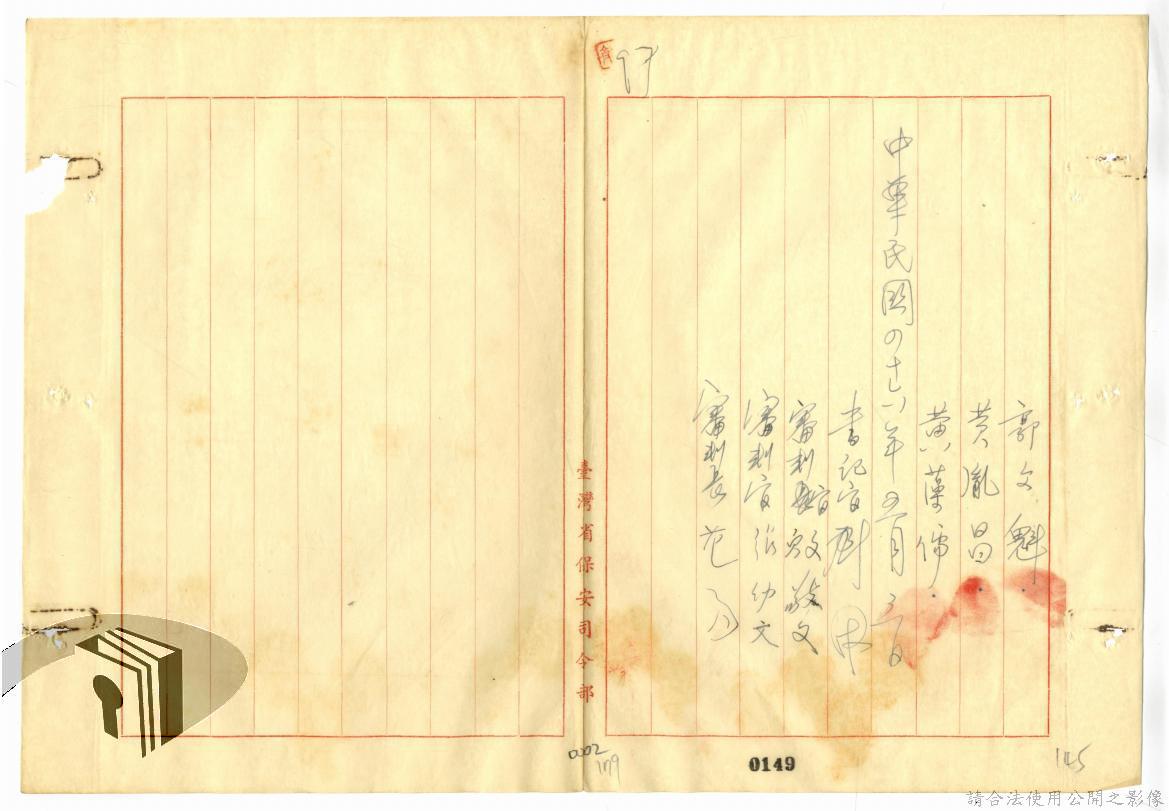 97
郭文魁
黃胤昌
黃藻儒
中華民國四十六年五月
書記官
審判官殷敬文
審判官張幼文
審判長范
臺灣省保安司令部
0002
179
0149
145
請合法使用公開之影像